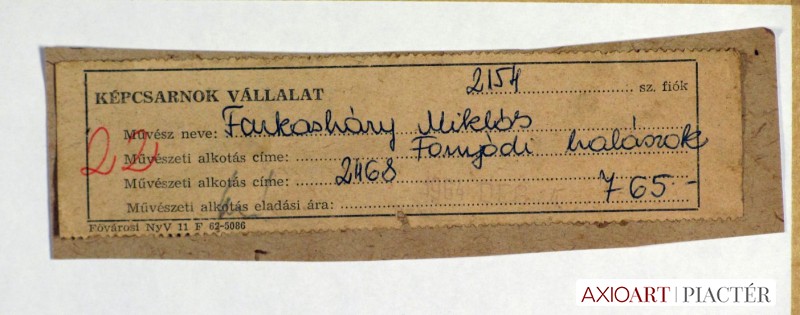 2154 sz. fiók
KÉPCSARNOK VÁLLALAT
Művész neve: Farkasháry Miklós
22
Művészeti alkotás címe: Fonyódi halászok
Művészeti alkotás címe: 2468
765.-
Művészeti alkotás eladási ára:
Fővárosi NyV 11 F 62-5086
AXIOART | PIACTÉR